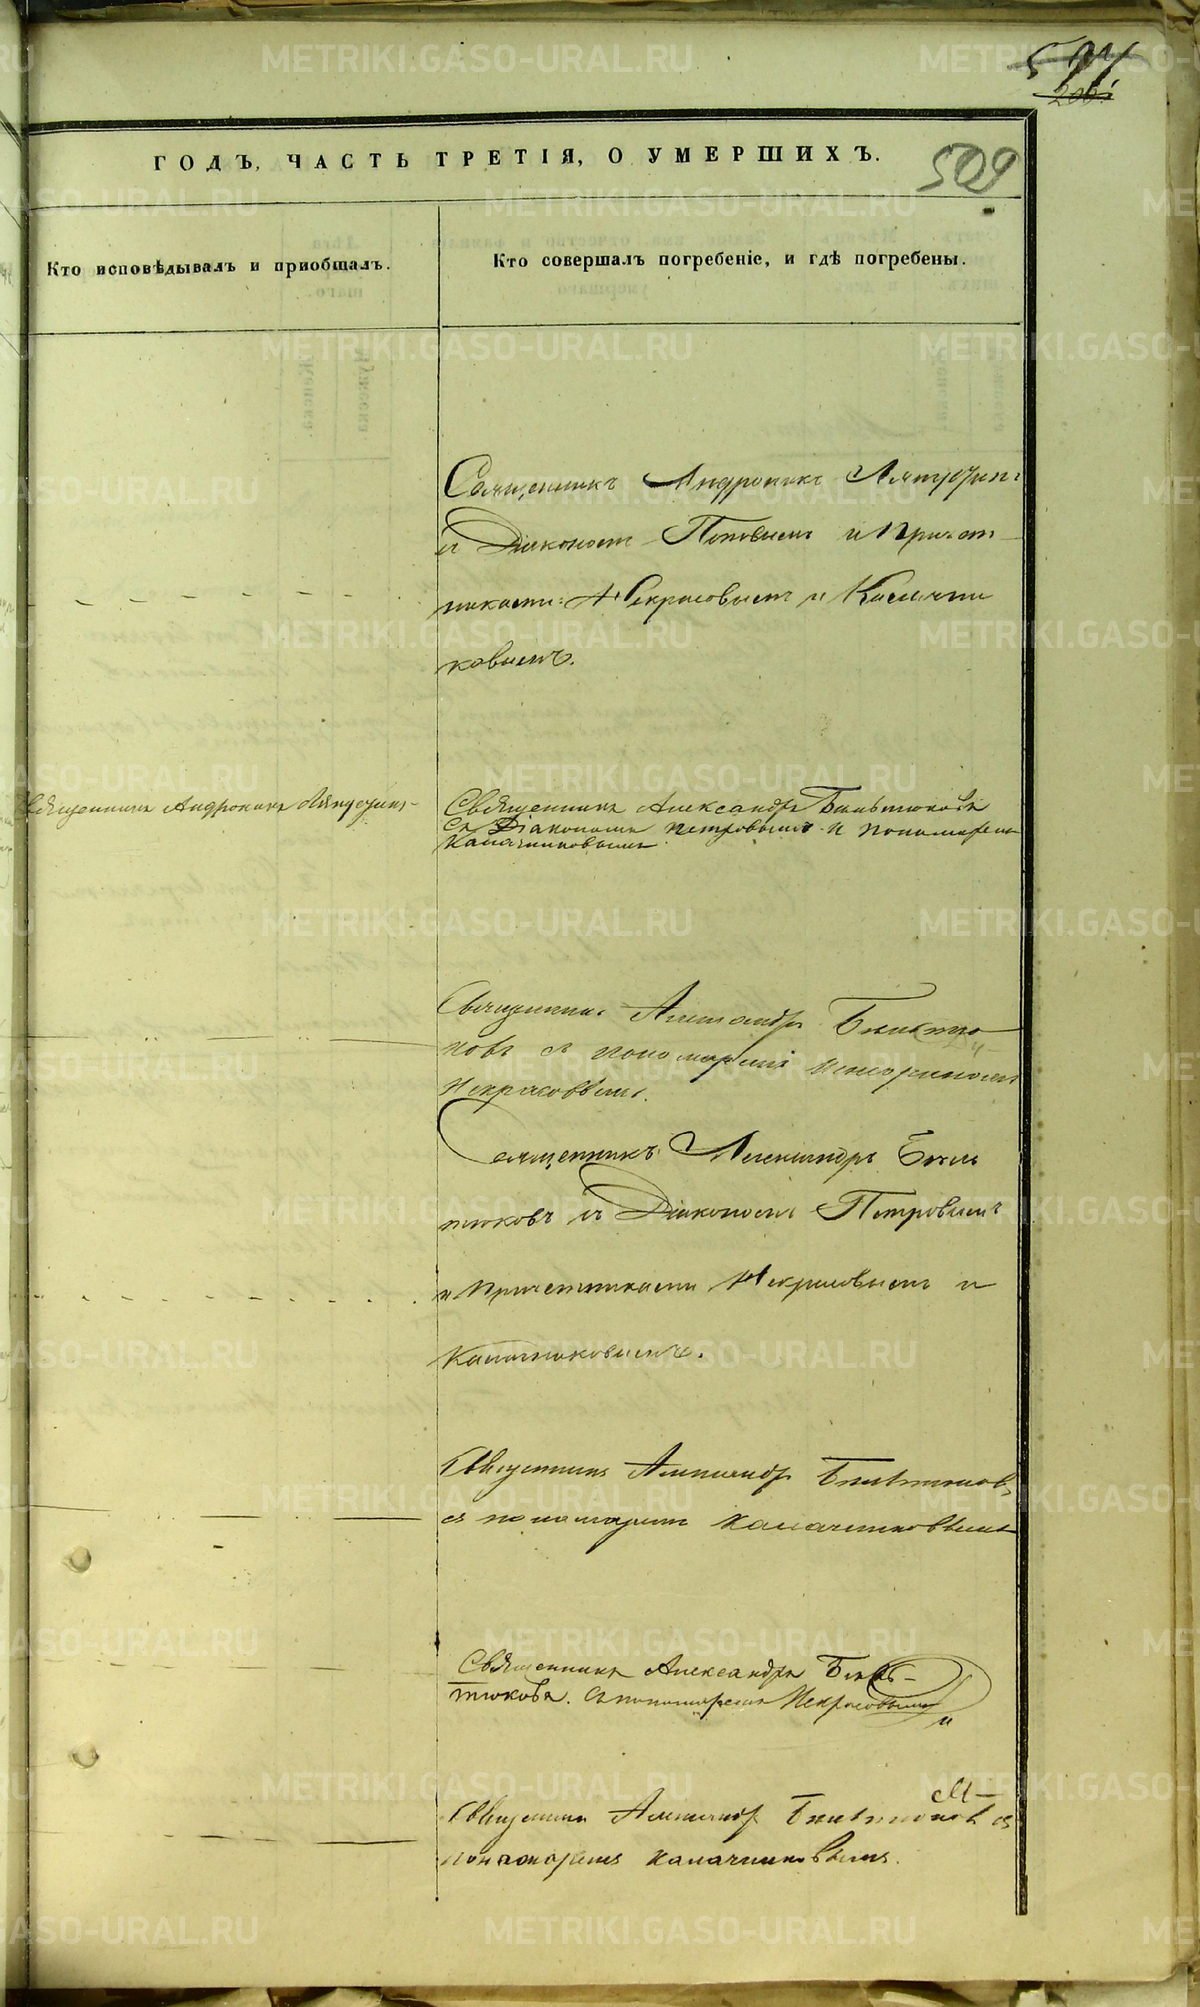 574
206
ГОДЪ, ЧАСТЬ ТРЕТІЯ, О УМЕРШИХЪ.
509
Кто исповѣдывалъ и приобщалъ.
Кто совершалъ погребеніе, и гдѣ погребены.
Священникъ Андроникъ
Діакономъ и Причет-
никами: Некрасовымъ и Калачни
ковымъ.
Священникъ Андроникъ
Священникъ Александръ
Съ Діакономъ Петровымъ и пономаремъ
Калачниковымъ
Священникъ Александръ
новъ съ пономаремъ
Некрасовымъ.
Священникъ Александръ
тюковъ съ Діакономъ Петровымъ
и Причетниками Некрасовымъ и
Калачниковымъ.
Священникъ Александръ
съ пономаремъ Калачниковымъ
Священникъ Александръ
тюковъ. съ пономаремъ Некрасовымъ
и
Священникъ Александръ съ
пономаремъ Калачниковымъ.
METRIKI.GASO-URAL.RU